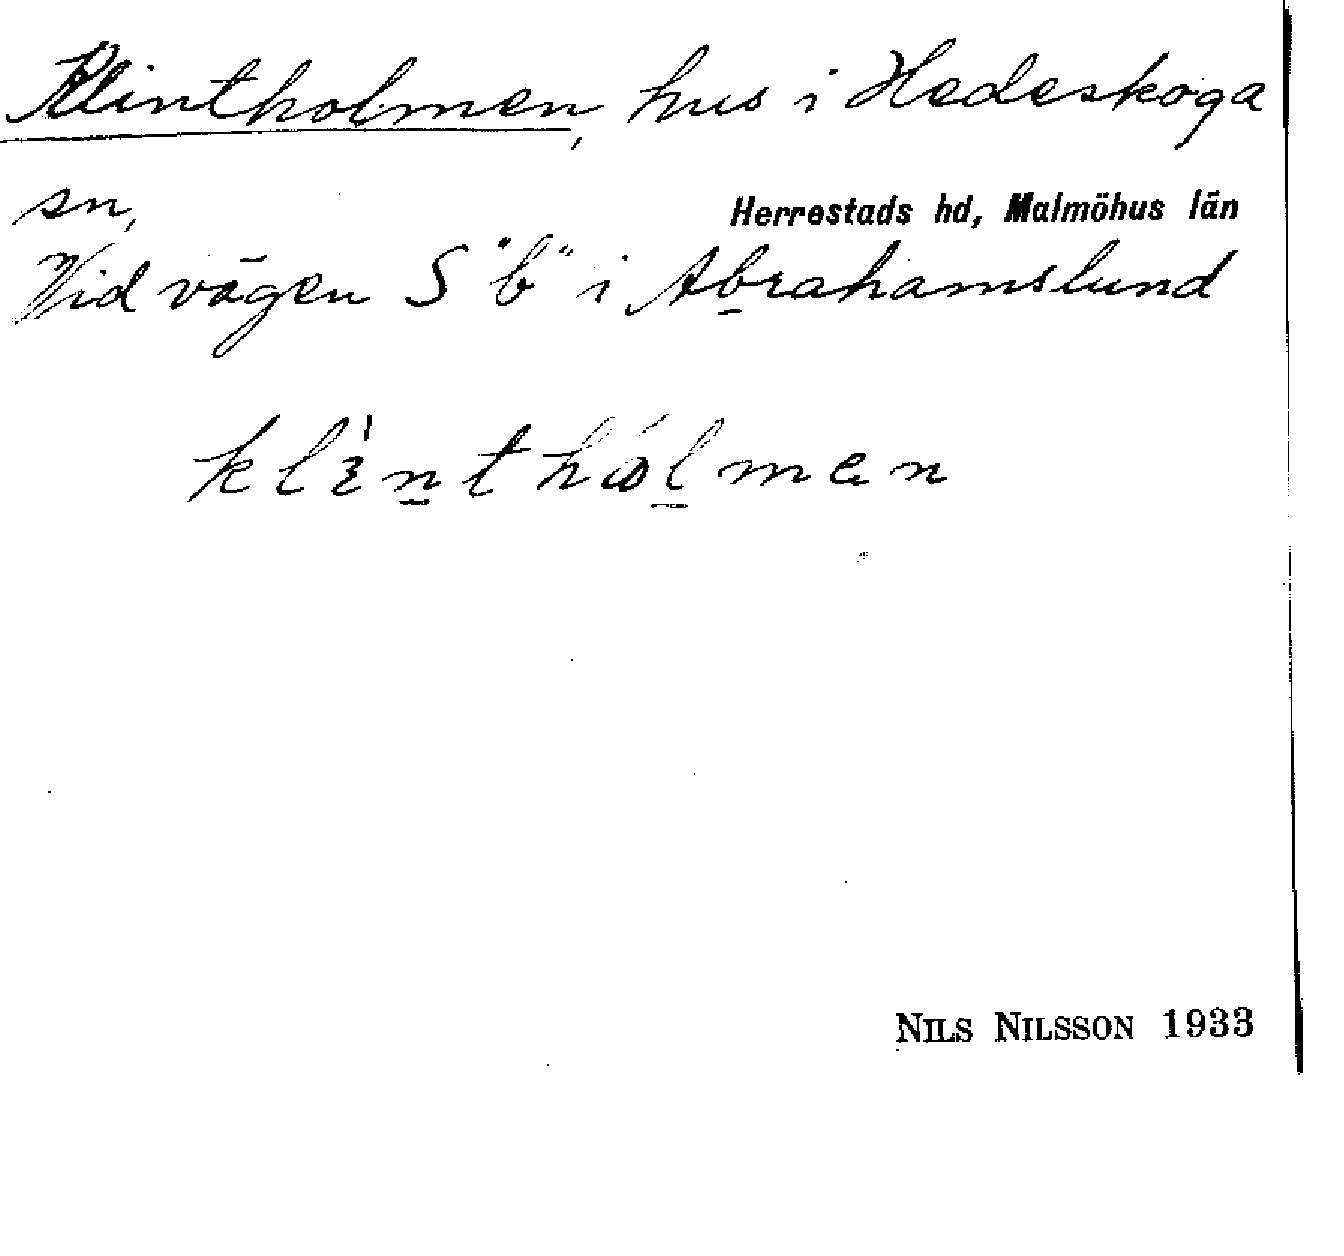 Klintholmen, hus i Hedeskoga
sn, Herrestads hd, Malmöhus län
Vid vägen S "b" i Abrahamslund
klìnthólmen
NILS NILSSON 1933